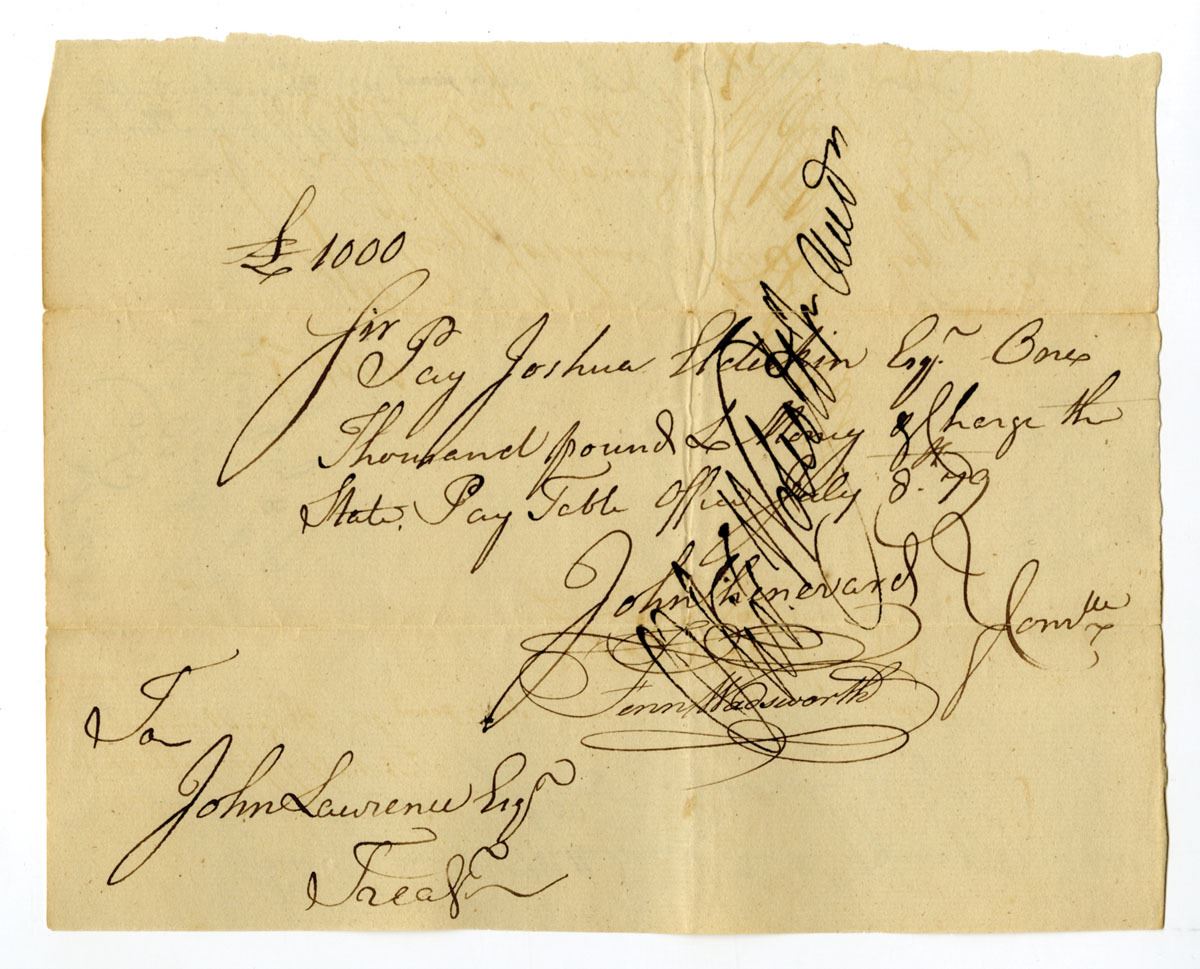 £1000
Sir
Pay Joshua Elderkin Esqr. One
Thousand pound L Money & Charge the
State. Pay Table Office July 8th 79
John Chenevard
Fenn Wadsworth
Comtte
To
John Lawrence Esqr
Treasr